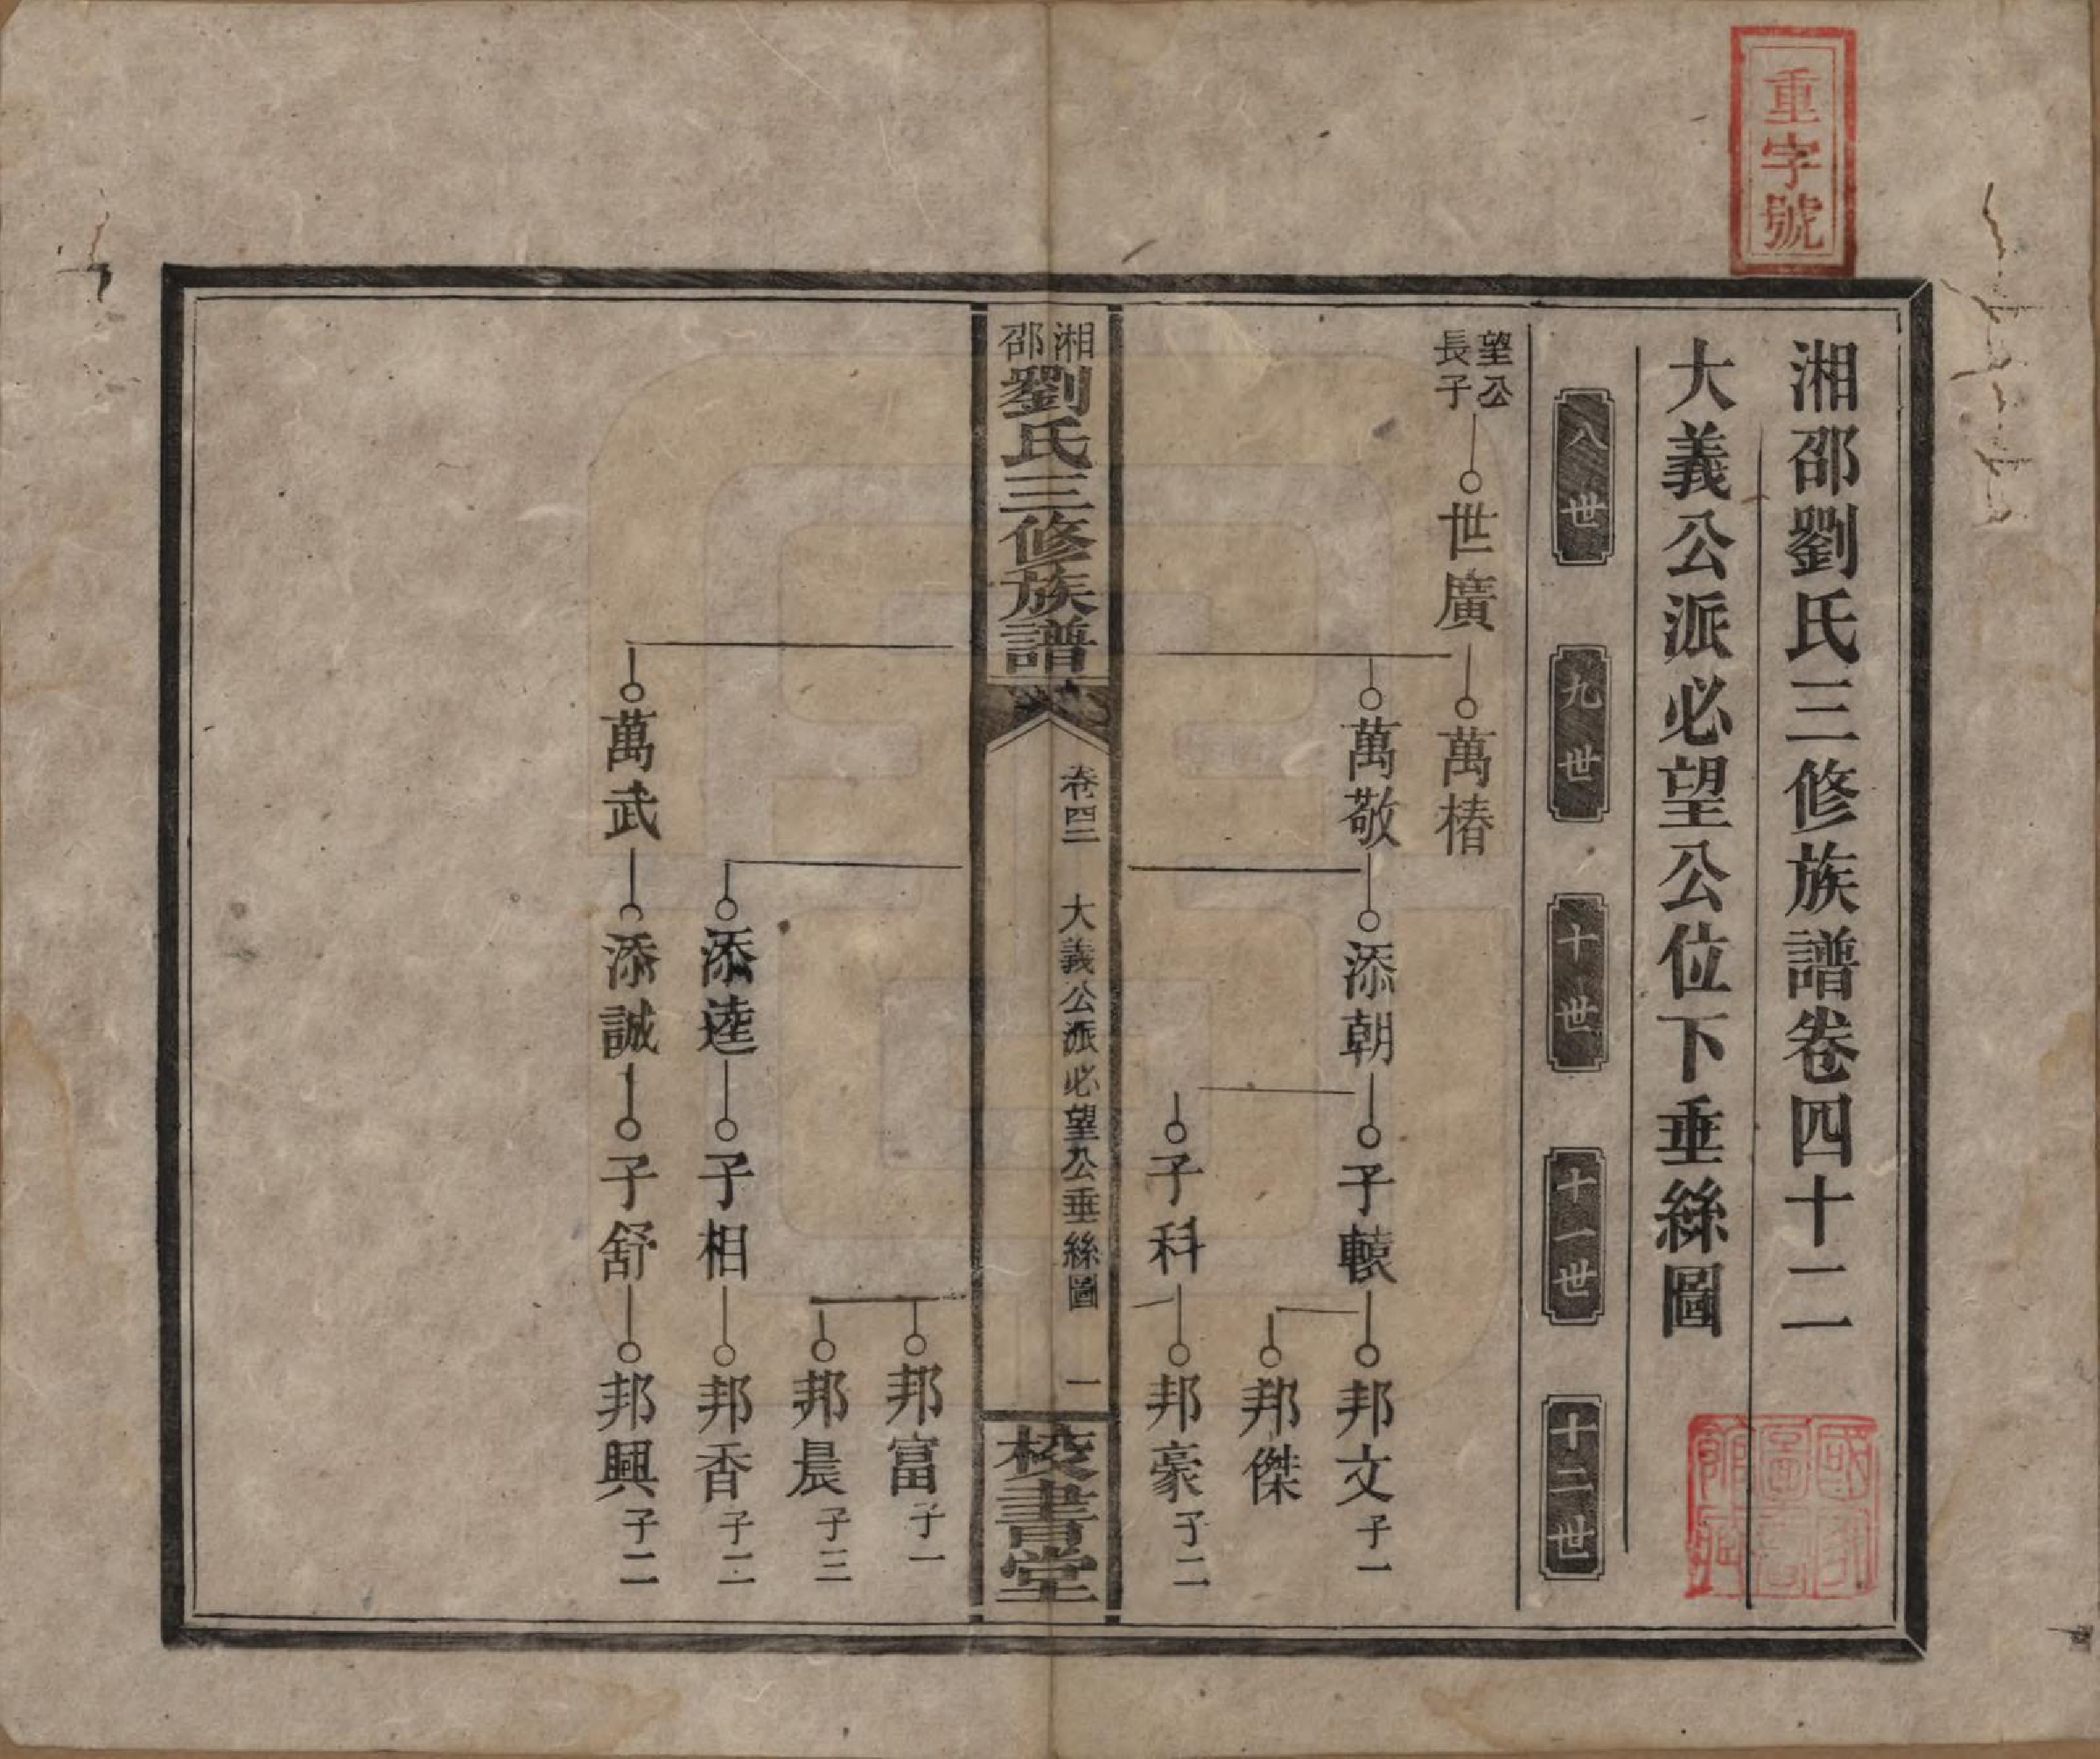 重字號
湘邵劉氏三修族譜卷四十二
大義公派必望公位下垂絲圖
八世
九世
十世
十一世
十二世
望公長子
世廣
萬椿
萬敬
添朝
子轅
邦文 子一
邦傑
子科
邦豪 子二
湘邵劉氏三修族譜
卷四二 大義公派必望公垂絲圖 一
校書堂
邦富 子一
邦晨 子三
添逵
子相
邦香 子二
萬武
添誠
子舒
邦興 子二